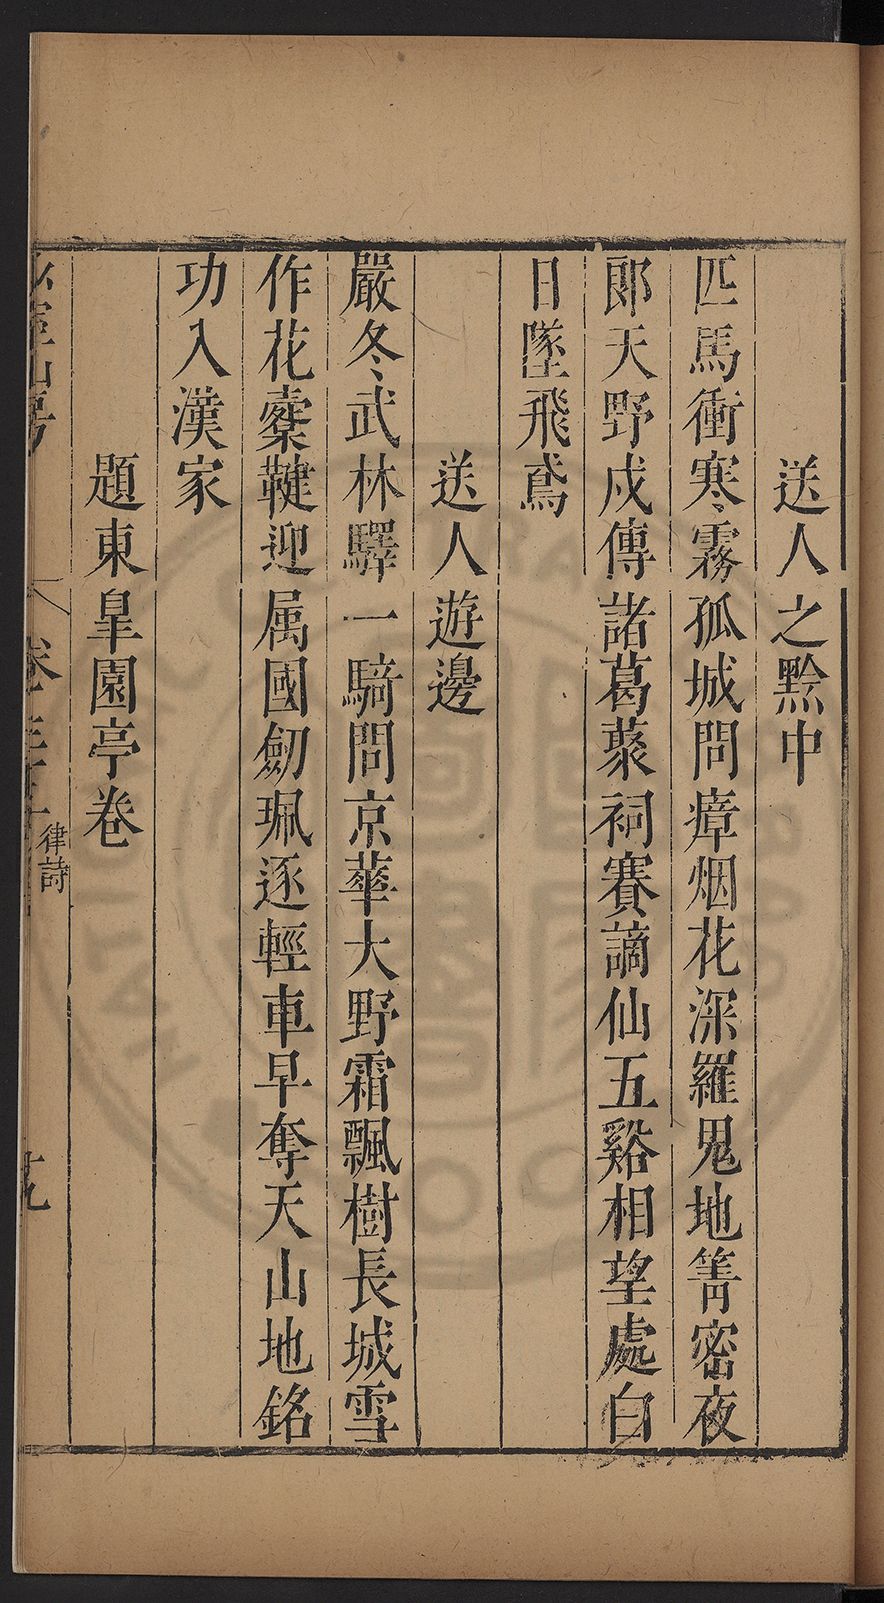 送人之黔中
匹馬衝寒霧孤城問瘴烟花深羅鬼地箐密夜
郎天野戍傳諸葛蓃祠賽謫仙五谿相望處白
日墜飛鳶
送人遊邊
嚴冬武林驛一騎問京華大野霜飄樹長城雪
作花櫜鞬迎属國劒珮逐輕車早奪天山地銘
功入漢家
題東皐園亭卷
山房
律詩